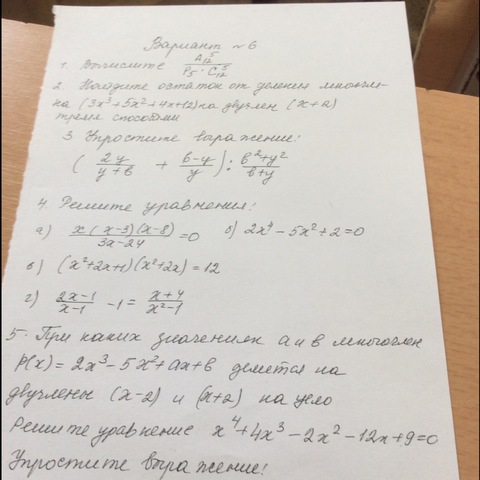 Вариант №6
1. Вычислите A₁₂⁵ / P₅ · C₁₂⁵
2. Найдите остаток от деления многочле-
на (3x³+5x²+4x+12) на двучлен (x+2)
тремя способами
3 Упростите выражение:
(2y/(y+в) + (в-y)/y) : (в²+y²)/(в+y)
4. Решите уравнения:
а) x(x-3)(x-8)/(3x-24) = 0 б) 2x⁴-5x²+2=0
в) (x²+2x+1)(x²+2x)=12
г) (2x-1)/(x-1) -1 = (x+4)/(x²-1)
5. При каких значениях а и в многочлен
P(x)=2x³-5x²+ax+в делится на
двучлены (x-2) и (x+2) на цело
Решите уравнение x⁴+4x³-2x²-12x+9=0
Упростите выражение!